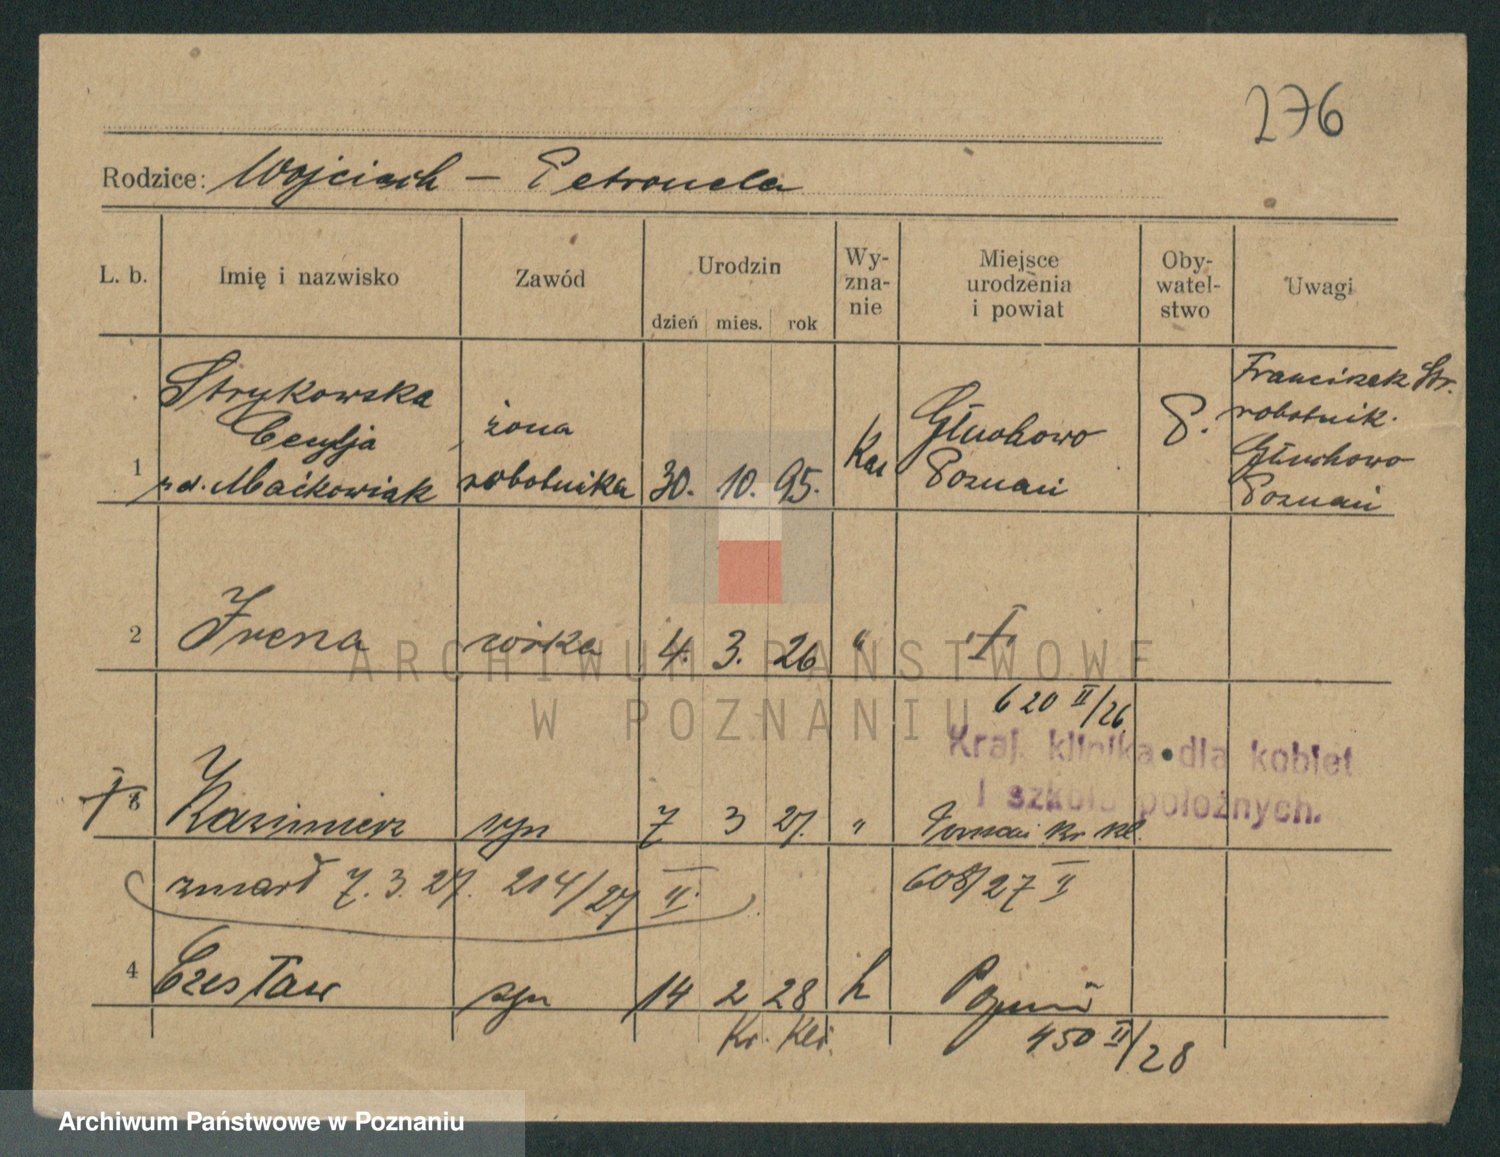 276
Rodzice: Wojciech – Petronela
L. b. Imię i nazwisko Zawód Urodzin dzień mies. rok Wy-zna-nie Miejsce urodzenia i powiat Oby-watel-stwo Uwagi
Strykowska
Cecylja
1 zd. Maćkowiak
żona
robotnika
30. 10. 95.
Kat
Głuchowo
Poznań
P.
Franciszek Str.
robotnik.
Głuchowo
Poznań
2 Irena córka 4. 3. 26 "
620 II/26
Kraj. klinika dla kobiet
i szkoła położnych.
† 3 Kazimierz syn 7 3 27. " Poznań Kr Kl.
zmarł 7. 3. 27. 214/27 II.
608/27 II
4 Czesław syn 14 2 28 k Poznań
Kr. Kli.
450 II/28
ARCHIWUM PAŃSTWOWE
W POZNANIU
Archiwum Państwowe w Poznaniu